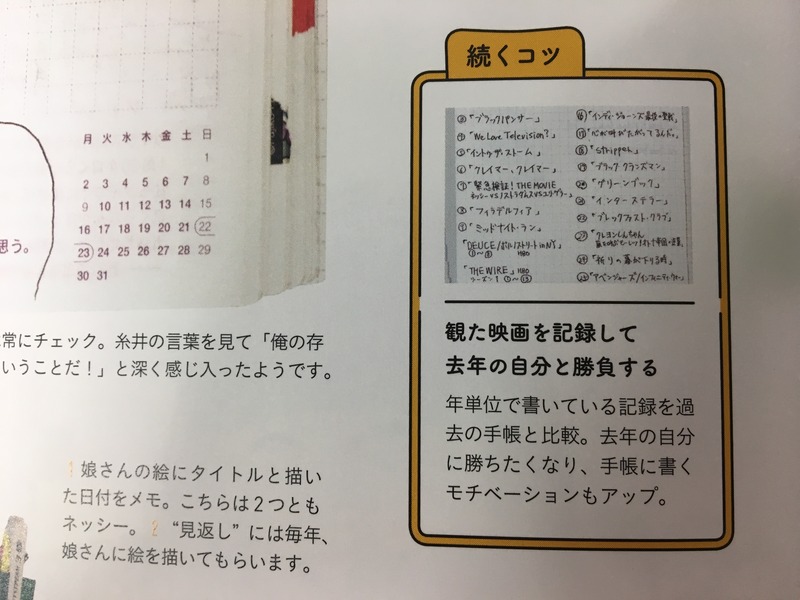 月 火 水 木 金 土 日
1
2 3 4 5 6 7 8
9 10 11 12 13 14 15
16 17 18 19 20 21 22
23 24 25 26 27 28 29
30 31
思う。
常にチェック。糸井の言葉を見て「俺の存
いうことだ!」と深く感じ入ったようです。
1 娘さんの絵にタイトルと描い
た日付をメモ。こちらは2つとも
ネッシー。2 “見返し”には毎年、
娘さんに絵を描いてもらいます。
続くコツ
「ブラックパンサー」
「We Love Television?」
「イントゥ・ザ・ストーム
「クレイマー、クレイマー」
「緊急検証! THE MOVIE
「フィラデルフィア」
「ミッドナイト・ラン」
「DEUCE/ポルノストリート in NY」
「THE WIRE」HBO
シーズン1
「インディ・ジョーンズ 最後の聖戦」
「心が叫びたがってるんだ。」
「ブラック・クランズマン」
「グリーンブック」
「インターステラー」
「ブレックファスト・クラブ」
「クレヨンしんちゃん
「祈りの幕が下りる時」
「アベンジャーズ/インフィニティ・ウォー」
観た映画を記録して
去年の自分と勝負する
年単位で書いている記録を過
去の手帳と比較。去年の自分
に勝ちたくなり、手帳に書く
モチベーションもアップ。